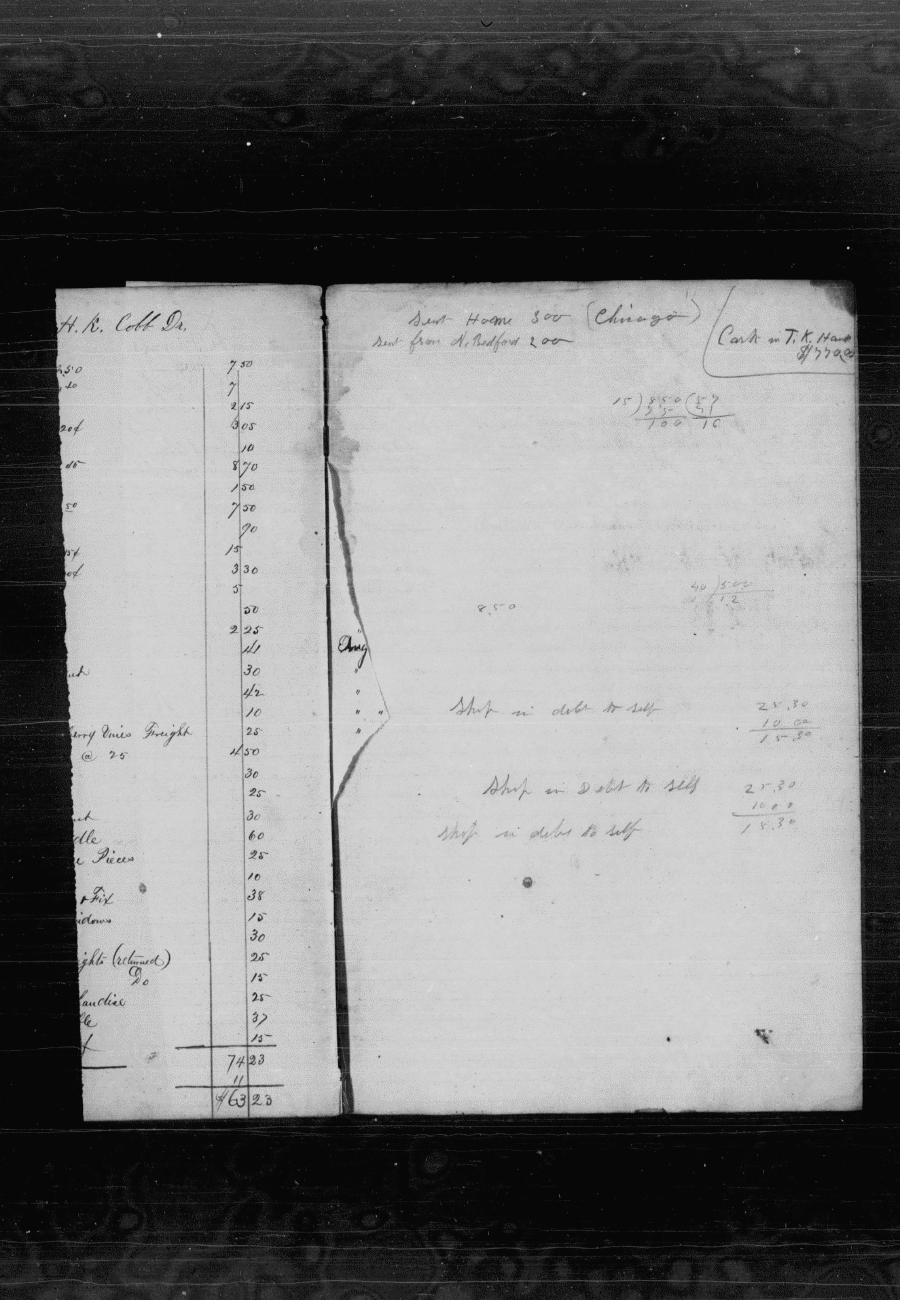 H. K. Cobb Dr.
50 7 50
7
2 15
20¢ 3 05
10
8 70
1 50
50 7 50
70
15
3 30
5
50
2 25
41
30
42
10
Freight 25
@ 25 4 50
30
25
30
dle 60
Pieces 25
10
& Fix 38
15
30
ghts (returned) 25
Do 15
handise 25
37
15
74 23
11
$63 23
Aug
"
"
" "
"
Sent Home 300 (Chicago)
Sent from N. Bedford 200
Cash in T. K.
15 ) 850 ( 57
100
850
40 ) 500
12
Ship in debt to self 25.30
10 00
15 30
Ship in Debt to self 25.30
10 0 0
15.30
Ship in debt to self